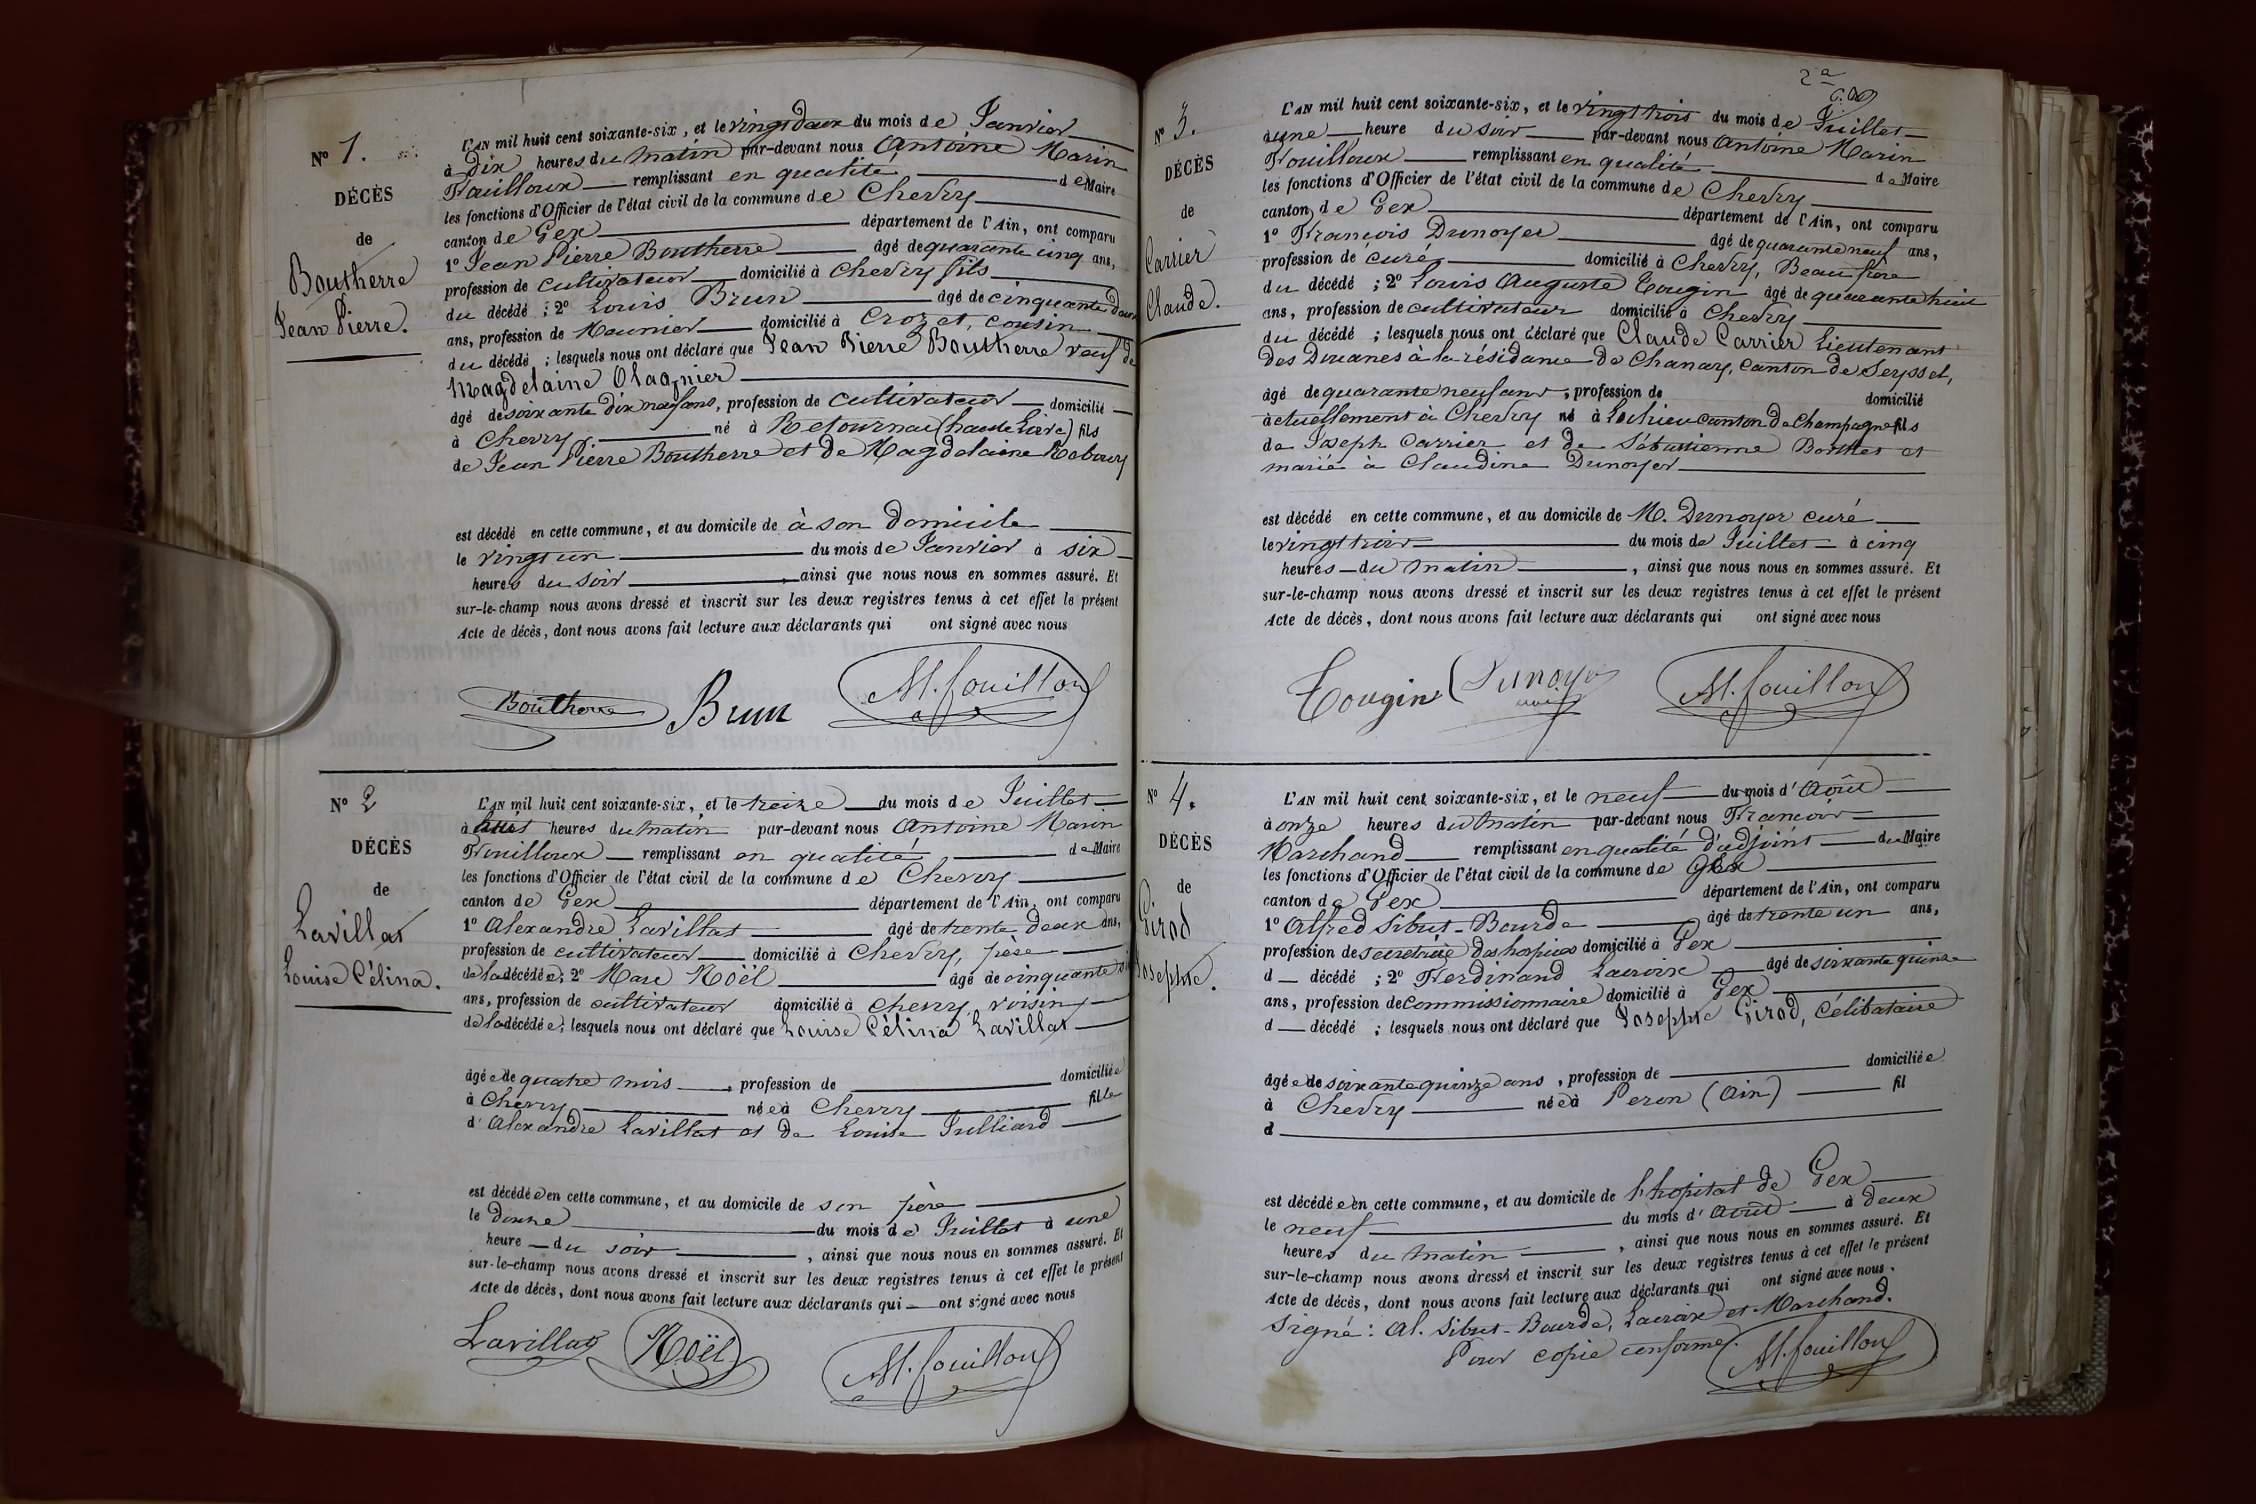 N° 1.
DÉCÈS
de
Boutherre
Jean Pierre.
L'AN mil huit cent soixante-six, et le vingt deux du mois de Janvier
à dix heures du matin par-devant nous Antoine Marin
Fouilloux remplissant en qualité de Maire
les fonctions d'Officier de l'état civil de la commune de Chevry
canton de Gex département de l'Ain, ont comparu
1° Jean Pierre Boutherre âgé de quarante cinq ans,
profession de cultivateur domicilié à Chevry fils
du décédé ; 2° Louis Brun âgé de cinquante deux
ans, profession de Meunier domicilié à Crozet, cousin
du décédé ; lesquels nous ont déclaré que Jean Pierre Boutherre veuf de
Magdelaine Olagnier
âgé de soixante dix neuf ans, profession de cultivateur domicilié
à Chevry né à Retournac (haute Loire) fils
de Jean Pierre Boutherre et de Magdelaine
est décédé en cette commune, et au domicile de à son domicile
le vingt un du mois de Janvier à six
heures du soir, ainsi que nous nous en sommes assuré. Et
sur-le-champ nous avons dressé et inscrit sur les deux registres tenus à cet effet le présent
Acte de décès, dont nous avons fait lecture aux déclarants qui ont signé avec nous
Boutherre Brun M. fouilloux
N° 2
DÉCÈS
de
Lavillat
Louise Célina.
L'AN mil huit cent soixante-six, et le treize du mois de Juillet
à huit heures du matin par-devant nous Antoine Marin
Fouilloux remplissant en qualité de Maire
les fonctions d'Officier de l'état civil de la commune de Chevry
canton de Gex département de l'Ain, ont comparu
1° Alexandre Lavillat âgé de trente deux ans,
profession de cultivateur domicilié à Chevry, père
de la décédée ; 2° Marc Noël âgé de cinquante
ans, profession de cultivateur domicilié à Chevry, voisin
de la décédée ; lesquels nous ont déclaré que Louise Célina Lavillat
âgée de quatre mois, profession de domiciliée
à Chevry née à Chevry fille
d'Alexandre Lavillat et de Louise Julliard
est décédée en cette commune, et au domicile de son père
le douze du mois de Juillet à une
heure du soir, ainsi que nous nous en sommes assuré. Et
sur-le-champ nous avons dressé et inscrit sur les deux registres tenus à cet effet le présent
Acte de décès, dont nous avons fait lecture aux déclarants qui ont signé avec nous
Lavillat Noël M. fouilloux
2e
N° 3.
DÉCÈS
de
Carrier
Claude.
L'AN mil huit cent soixante-six, et le vingt trois du mois de Juillet
à une heure du soir par-devant nous Antoine Marin
Fouilloux remplissant en qualité de Maire
les fonctions d'Officier de l'état civil de la commune de Chevry
canton de Gex département de l'Ain, ont comparu
1° François Dunoyer âgé de quarante neuf ans,
profession de curé domicilié à Chevry, Beau frère
du décédé ; 2° Louis Auguste Tougin âgé de quarante huit
ans, profession de cultivateur domicilié à Chevry
du décédé ; lesquels nous ont déclaré que Claude Carrier Lieutenant
des Douanes à la résidence de Chanay, canton de Seyssel,
âgé de quarante neuf ans, profession de domicilié
actuellement à Chevry né à Lochieu canton de Champagne fils
de Joseph Carrier et de Sébastienne Borthet et
marié à Claudine Dunoyer
est décédé en cette commune, et au domicile de M. Dunoyer curé
le vingt trois du mois de Juillet à cinq
heures du matin, ainsi que nous nous en sommes assuré. Et
sur-le-champ nous avons dressé et inscrit sur les deux registres tenus à cet effet le présent
Acte de décès, dont nous avons fait lecture aux déclarants qui ont signé avec nous
Tougin Dunoyer M. fouilloux
N° 4.
DÉCÈS
de
Girod
Josephte.
L'AN mil huit cent soixante-six, et le neuf du mois d'Août
à onze heures du matin par-devant nous François
Marchand remplissant en qualité d'adjoint du Maire
les fonctions d'Officier de l'état civil de la commune de Gex
canton de Gex département de l'Ain, ont comparu
1° Alfred Sibut-Bourde âgé de trente un ans,
profession de secrétaire des hospices domicilié à Gex
d décédé ; 2° Ferdinand Lacroix âgé de soixante quinze
ans, profession de Commissionnaire domicilié à Gex
d décédé ; lesquels nous ont déclaré que Josephte Girod, Célibataire
âgée de soixante quinze ans, profession de domiciliée
à Chevry née à Peron (Ain) fil
d
est décédée en cette commune, et au domicile de l'hopital de Gex
le neuf du mois d'Août à deux
heures du matin, ainsi que nous nous en sommes assuré. Et
sur-le-champ nous avons dressé et inscrit sur les deux registres tenus à cet effet le présent
Acte de décès, dont nous avons fait lecture aux déclarants qui ont signé avec nous.
Signé : Al. Sibut-Bourde, Lacroix et Marchand.
Pour copie conforme. M. fouilloux